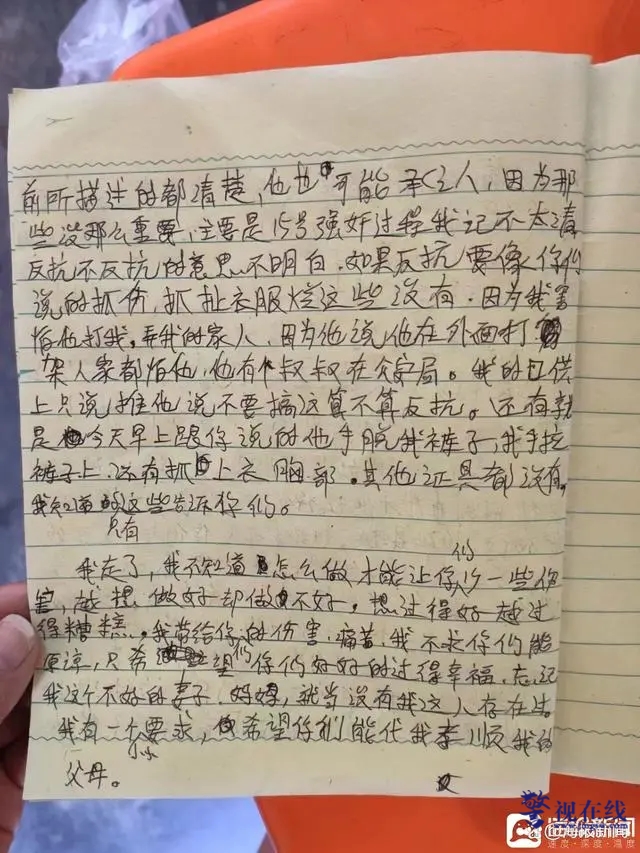 前所描述的都清楚,他也可能承认人,因为那
些没那么重要,主要是15号强奸过程我记不太清
反抗不反抗的意思不明白.如果反抗要像你们
说的抓伤,抓扯衣服烂这些没有.因为我害
怕他打我,弄我的家人,因为他说他在外面打
架人家都怕他,他有个叔叔在公安局。我的口供
上只说推他说不要搞这算不算反抗。还有就
是今天早上跟你说的他手脱我裤子,我手拉
裤子上.还有抓上衣胸部.其他证具都没有,
我知道的只有这些告诉你们。
我走了,我不知道怎么做才能让你们少一些伤
害,越想做好却做不好.想过得好越过
得糟糕。我带给你们的伤害.痛苦.我不求你们能
原谅,只希望你们好好的过得幸福.忘记
我这个不好的妻子.妈妈,就当没有我这人存在过.
我有一个小小要求,希望你们能代我孝顺我的
父母。
警视在线
@海报新闻
速度·深度·温度